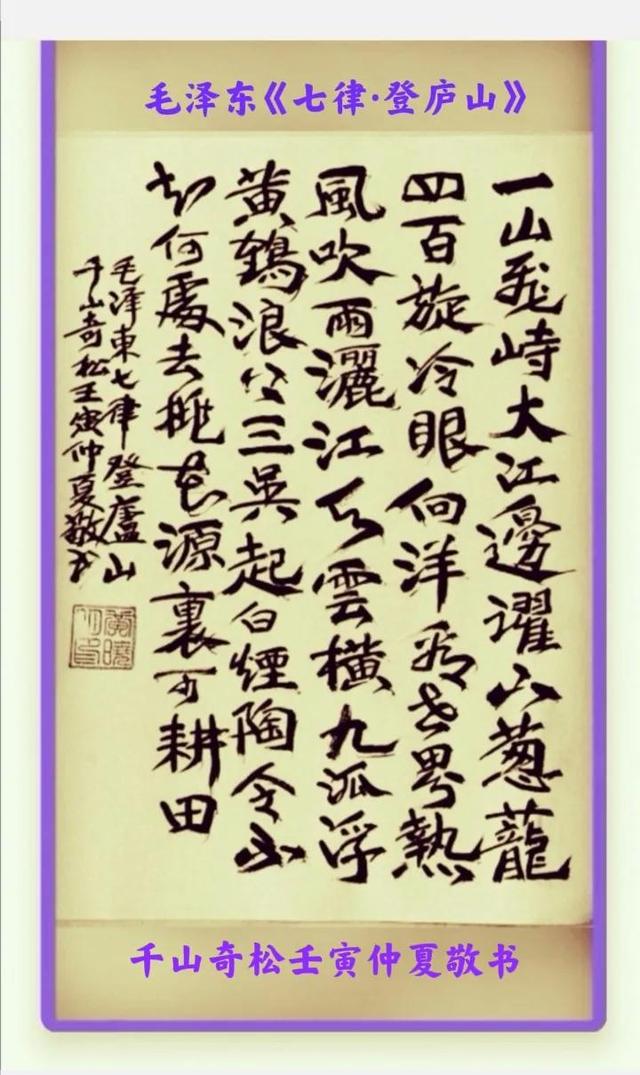 毛泽东《七律·登庐山》
一山飛峙大江邊躍上葱蘢
四百旋冷眼向洋看世界熱
風吹雨灑江天雲橫九派浮
黄鶴浪下三吳起白煙陶令不
知何處去桃花源裏可耕田
毛泽東七律登廬山
千山奇松壬寅仲夏敬书
千山奇松壬寅仲夏敬书